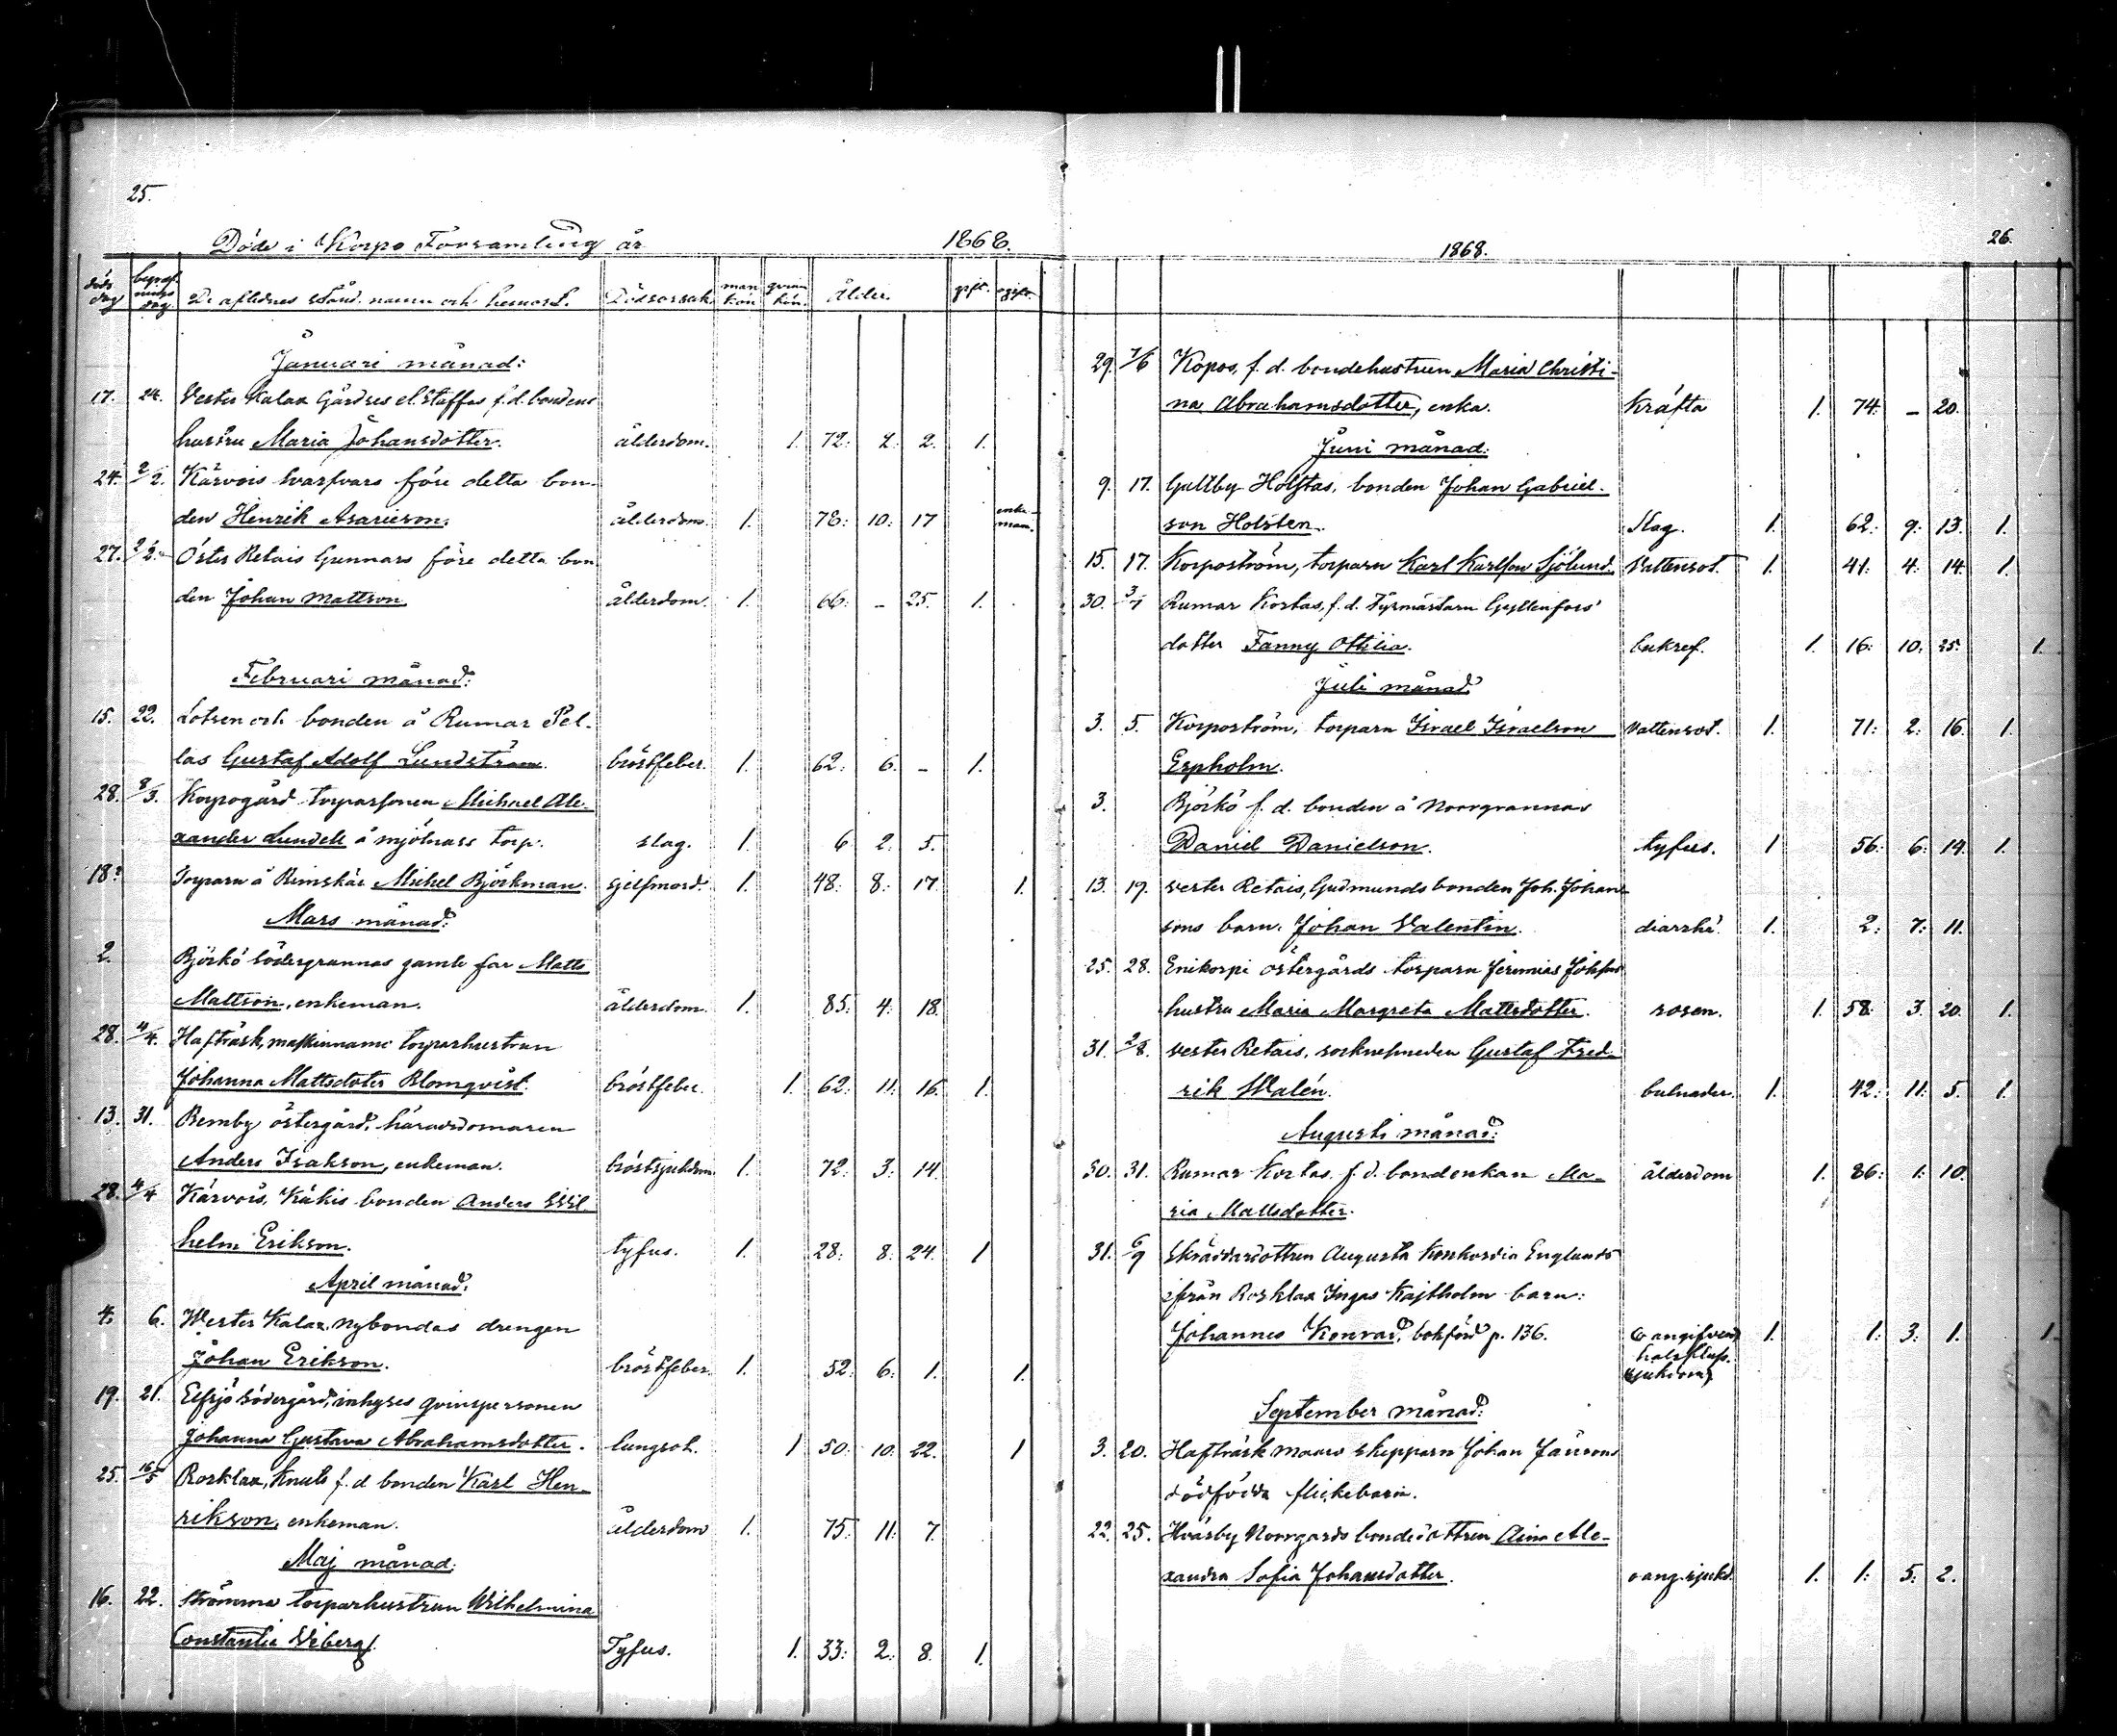 25.
Döde i Korpo Församling år 1868.
döds dag begrafnings dag De aflidnes stånd, namn och hemort. Dödsorsak man kön qvin kön Ålder. gift. ogift.
Januari månad:
17. 24. Vester Kalax Gårdses el. Staffas f.d. bondens
hustru Maria Johansdotter. ålderdom. 1. 72: 2. 1.
24. 2/2. Kärvois hvarfvars före detta bon-
den Henrik Asarieson. ålderdom. 1. 78: 10: 17 enke-man.
27. 2/2. Öster Retais Gunnars före detta bon
den Johan Mattson. ålderdom. 1. 66: - 25. 1.
Februari månad:
15. 22. Lotsen och bonden å Rumar Pel-
las Gustaf Adolf Lundström. bröstfeber. 1. 62: 6. - 1.
28. 8/3. Korpogård torparsonen Michael Ale-
xander Lundell å mjölnars torp. slag. 1. 6 2: 5.
18? Torparn å Rimskär Michel Björkman. sjelfmord. 1. 48: 8: 17. 1.
Mars månad:
2. Björkö södergrannas gamle far Matts
Mattson, enkeman. ålderdom. 1. 85: 4: 18.
28. 4/4. Hafträsk, torparhustrun
Johanna Mattsdoter Blomqvist. bröstfeber. 1. 62: 11: 16. 1.
13. 31. Remby östergård, häradsdomaren
Anders Isakson, enkeman. bröstsjukdom. 1. 72: 3: 14.
28. 4/4 Kärvois, Käkis bonden Anders Wil-
helm Erikson. tyfus. 1. 28: 8: 24. 1
April månad:
4. 6. Wester Kalax, Nybondas drengen
Johan Erikson. bröstfeber. 1. 52: 6: 1. 1.
19. 21. Elfsjö Södergård, inhyses qvinspersonen
Johanna Gustava Abrahamsdotter. lungsot. 1 50: 10: 22. 1
25. 16/5 Rosklax, Knuts f.d. bonden Karl Hen-
rikson, enkeman. ålderdom 1. 75: 11: 7.
Maj månad:
16. 22. Strömma torparhustrun Wilhelmina
Constantia Viberg. Tyfus. 1. 33: 2: 8. 1.
1868. 26.
29. 7/6 Kopos, f.d. bondehustrun Maria Christi-
na Abrahamsdotter, enka. Kräfta 1. 74: - 20.
Juni månad:
9. 17. Galtby Holstas, bonden Johan Gabriel-
son Holsten. Slag. 1. 62: 9: 13. 1.
15. 17. Korpoström, torparn Karl Karlson Sjölund. Vattensot. 1. 41: 4: 14. 1.
30. Rumar Kortas, f.d. Fyrmästarn Gyllenfors'
dotter Fanny Ottilia. bukref. 1. 16: 10: 25: 1.
Juli månad:
3. 5. Korpoström, torparn Israel Israelson Vattensot. 1. 71: 2: 16. 1.
Espholm.
3. Björkö f.d. bonden å Norrgrannas
Daniel Danielson. tyfus. 1 56: 6: 14. 1.
13. 19. Vester Retais, Gudmunds bonden Joh. Johan-
sons barn. Johan Valentin. diarrhé. 1. 2: 7: 11.
25. 28. Enikorpi östergårds torparn Jeremias Johfns
hustru Maria Margreta Mattsdotter. rosen. 1. 58: 3. 20. 1.
31. 2/8. Vester Retais, socknesmeden Gustaf Fred-
rik Walén. bulnader. 1. 42: 11: 5. 1.
Augusti månad:
30. 31. Rumar Kortas. f.d. bondenkan Ma- ålderdom 1. 86: 1: 10.
ria Mattsdotter.
31. 6/9 Skräddardottren Augusta Konkordia Englunds
ifrån Rosklax Ingas Kajtholm barn:
Johannes Konrad, bokförd p. 136. oangifven 1. 1: 3: 1. 1
halsfluss.
sjukdom
September månad:
3. 20. Hafträsk skepparn Johan Jansons
dödfödda flickebarn.
22. 25. Hväsby Norrgårds bondedottren Aina Ale-
xandra Sofia Johansdotter. oang. sjukd. 1. 1: 5: 2.